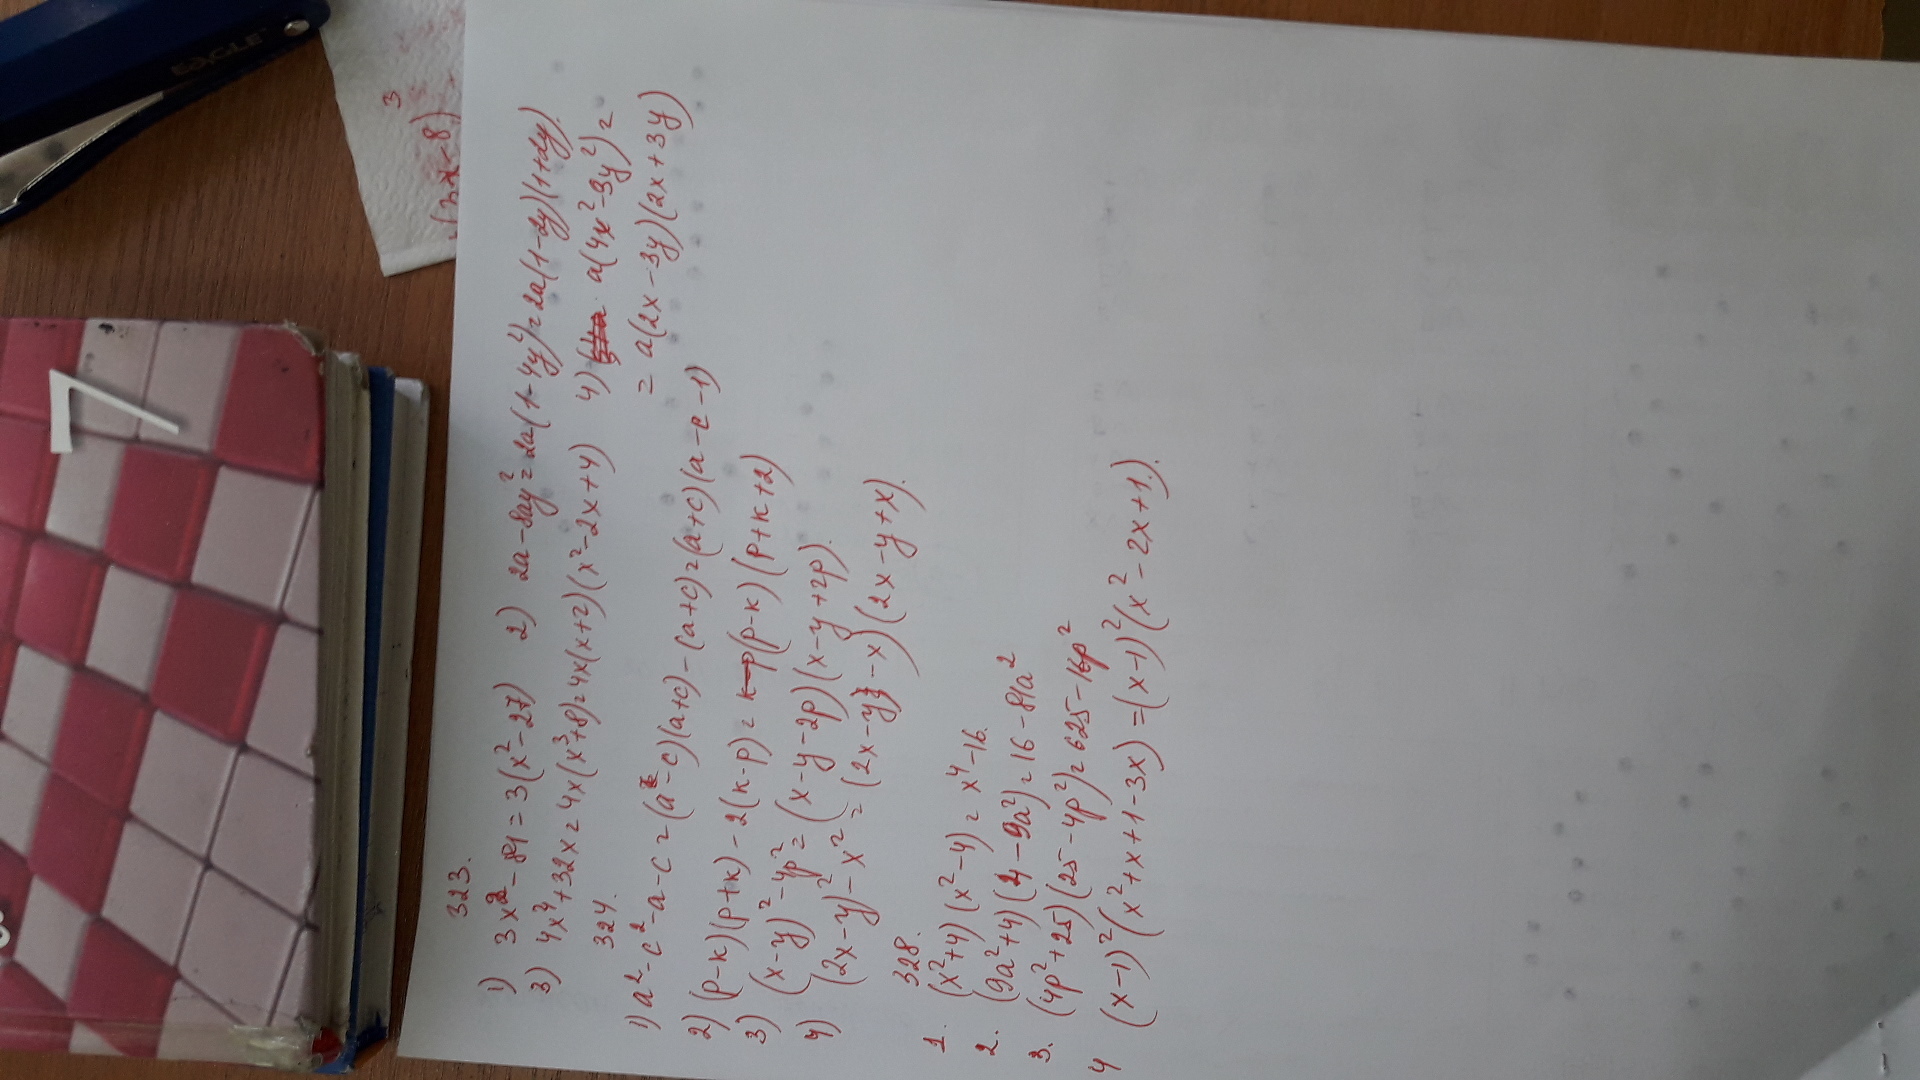 EAGLE
7
3
(3x-8)
323.
1) 3x² - 81 = 3(x² - 27) 2) 2a - 8ay² = 2a(1 - 4y²) = 2a(1 - 2y)(1 + 2y).
3) 4x⁴ + 32x = 4x(x³ + 8) = 4x(x + 2)(x² - 2x + 4) 4) a(4x² - 3y²) =
= a(2x - 3y)(2x + 3y)
324.
1) a² - c² - a - c = (a - c)(a + c) - (a + c) = (a + c)(a - c - 1)
2) (p - k)(p + k) - 2(k - p) = (p - k)(p + k + 2)
3) (x - y)² - 4p² = (x - y - 2p)(x - y + 2p).
4) (2x - y)² - x² = (2x - y - x)(2x - y + x).
328.
1. (x² + 4)(x² - 4) = x⁴ - 16.
2. (9a² + 4)(4 - 9a²) = 16 - 81a²
3. (4p² + 25)(25 - 4p²) = 625 - 16p²
4 (x - 1)²(x² + x + 1 - 3x) = (x - 1)²(x² - 2x + 1).